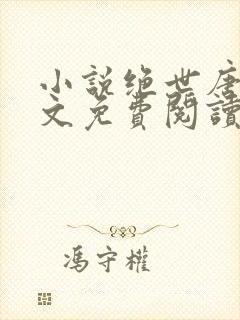 小說绝世唐
文免費閱讀
馮守權